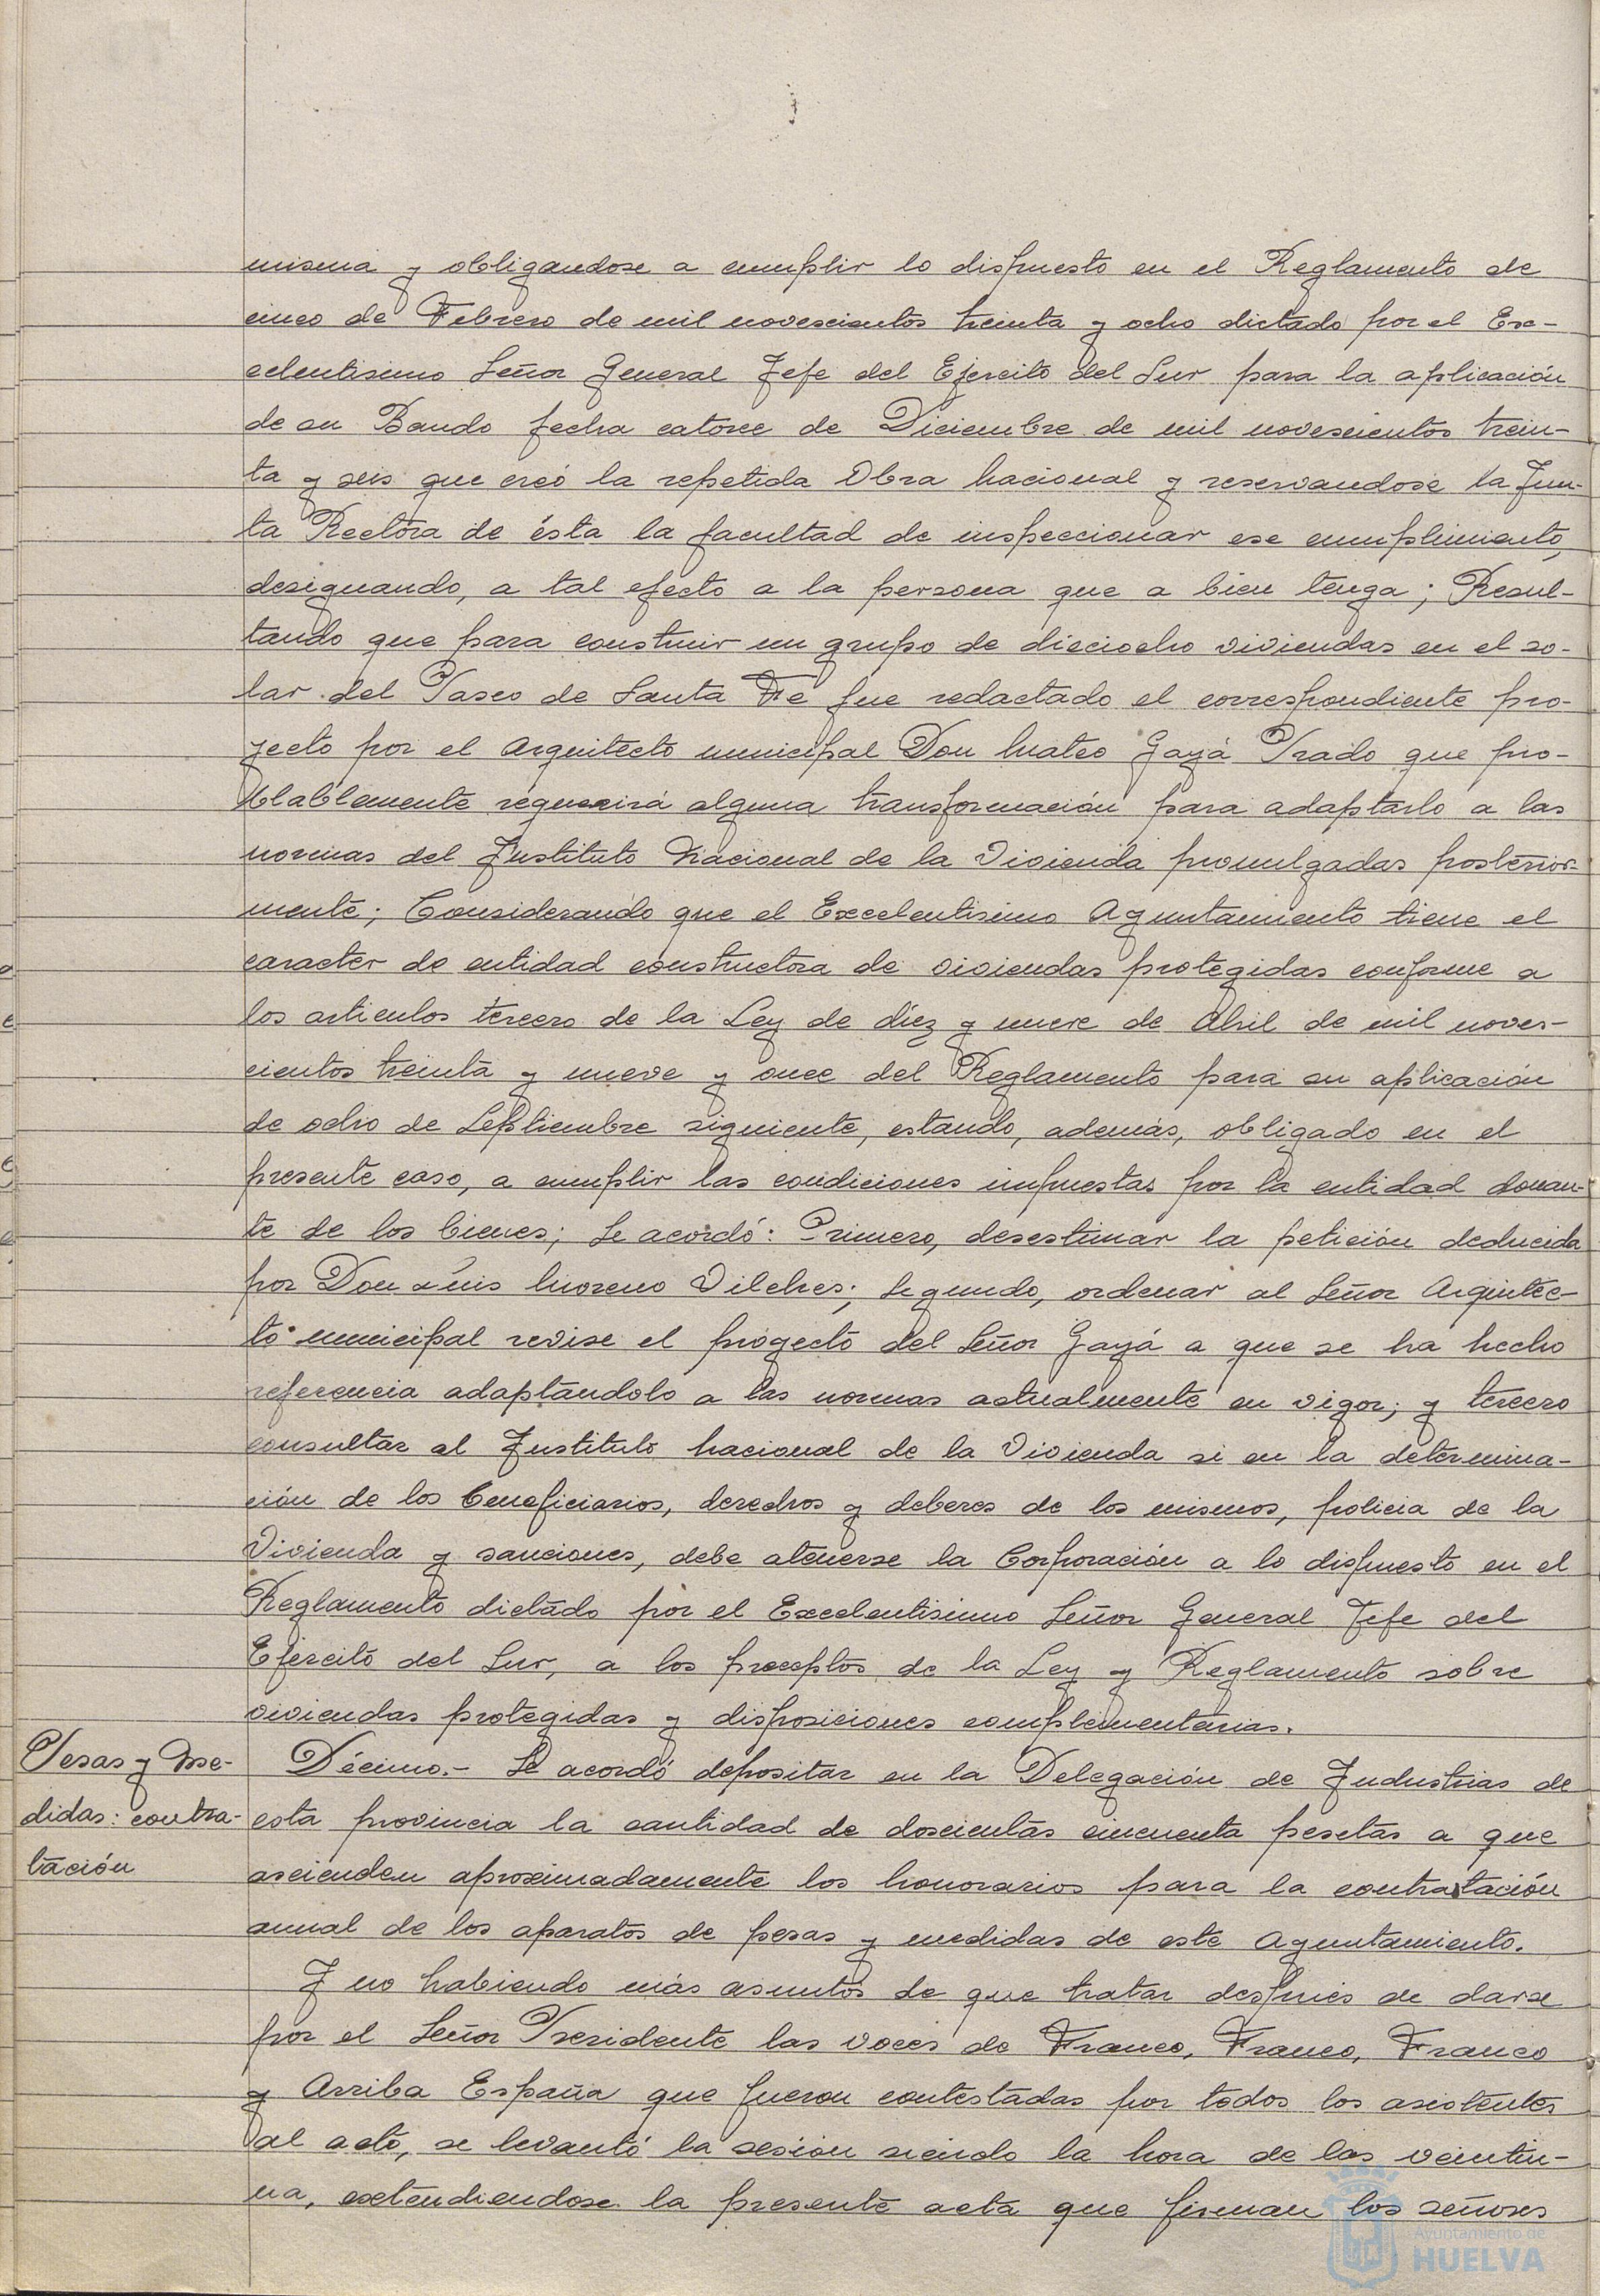 misma y obligandose a cumplir lo dispuesto en el Reglamento de
cinco de Febrero de mil novescientos treinta y ocho dictado por el Exc-
celentisimo Señor General Jefe del Ejercito del Sur para la aplicación
de su Bando fecha catorce de Diciembre de mil novescientos trein-
ta y seis que creó la repetida Obra Nacional y reservandose la Jun-
ta Rectora de ésta la facultad de inspeccionar ese cumplimiento,
designando, a tal efecto a la persona que a bien tenga; Resul-
tando que para construir un grupo de dieciocho viviendas en el so-
lar del Paseo de Santa Fe fue redactado el correspondiente pro-
yecto por el Arquitecto municipal Don Mateo Gayá Prado que pro-
blablemente requerirá alguna transformación para adaptarlo a las
normas del Instituto Nacional de la Vivienda promulgadas posterior-
mente; Considerando que el Excelentisimo Ayuntamiento tiene el
caracter de entidad constructora de viviendas protegidas conforme a
los articulos tercero de la Ley de diez y nueve de Abril de mil noves-
cientos treinta y nueve y once del Reglamento para su aplicación
de ocho de Septiembre siguiente, estando, además, obligado en el
presente caso, a cumplir las condiciones impuestas por la entidad donan-
te de los bienes; Se acordó: Primero, desestimar la petición deducida
por Don Luis Moreno Vilches; Segundo, ordenar al Señor Arquitec-
to municipal revise el proyecto del Señor Gayá a que se ha hecho
referencia adaptándolo a las normas actualmente en vigor; y tercero
consultar al Instituto Nacional de la Vivienda si en la determina-
ción de los beneficiarios, derechos y deberes de los mismos, policia de la
Vivienda y sanciones, debe atenerse la Corporación a lo dispuesto en el
Reglamento dictado por el Excelentisimo Señor General Jefe del
Ejercito del Sur, a los preceptos de la Ley y Reglamento sobre
viviendas protegidas y disposiciones complementarias.
Pesas y Me-
didas: contra-
tación
Décimo.- Se acordó depositar en la Delegación de Industrias de
esta provincia la cantidad de doscientas cincuenta pesetas a que
ascienden aproximadamente los honorarios para la contratación
anual de los aparatos de pesas y medidas de este Ayuntamiento.
Y no habiendo más asuntos de que tratar después de darse
por el Señor Presidente las voces de Franco, Franco, Franco
y Arriba España que fueron contestadas por todos los asistentes
al acto, se levantó la sesión siendo la hora de las veintiu-
na, extendiendose la presente acta que firman los señores
Ayuntamiento de
HUELVA